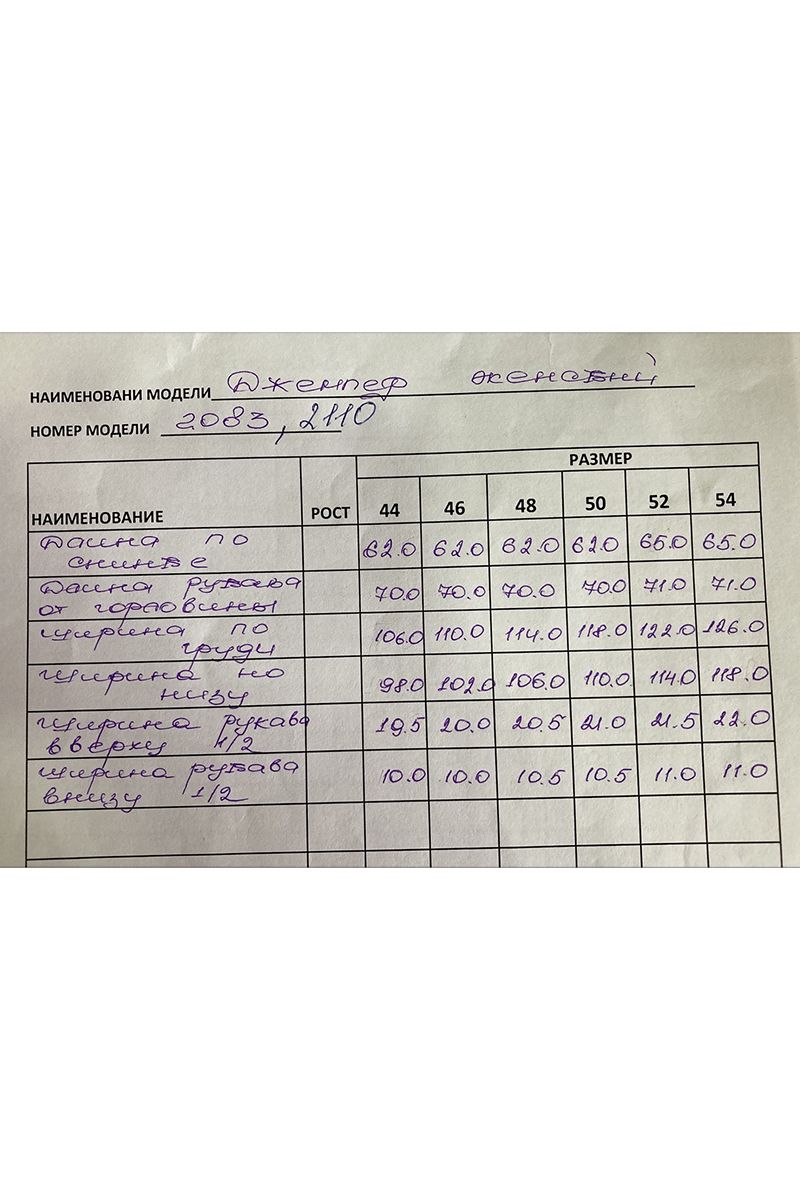 НАИМЕНОВАНИ МОДЕЛИ Джемпер женский
НОМЕР МОДЕЛИ 2083, 2110
РАЗМЕР
НАИМЕНОВАНИЕ РОСТ 44 46 48 50 52 54
Длина по спинке 62.0 62.0 62.0 62.0 65.0 65.0
Длина рукава от горловины 70.0 70.0 70.0 70.0 71.0 71.0
Ширина по груди 106.0 110.0 114.0 118.0 122.0 126.0
Ширина по низу 98.0 102.0 106.0 110.0 114.0 118.0
Ширина рукава вверху 1/2 19.5 20.0 20.5 21.0 21.5 22.0
Ширина рукава внизу 1/2 10.0 10.0 10.5 10.5 11.0 11.0